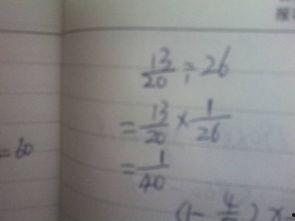 13/20 ÷ 26
= 13/20 × 1/26
= 1/40
= 60